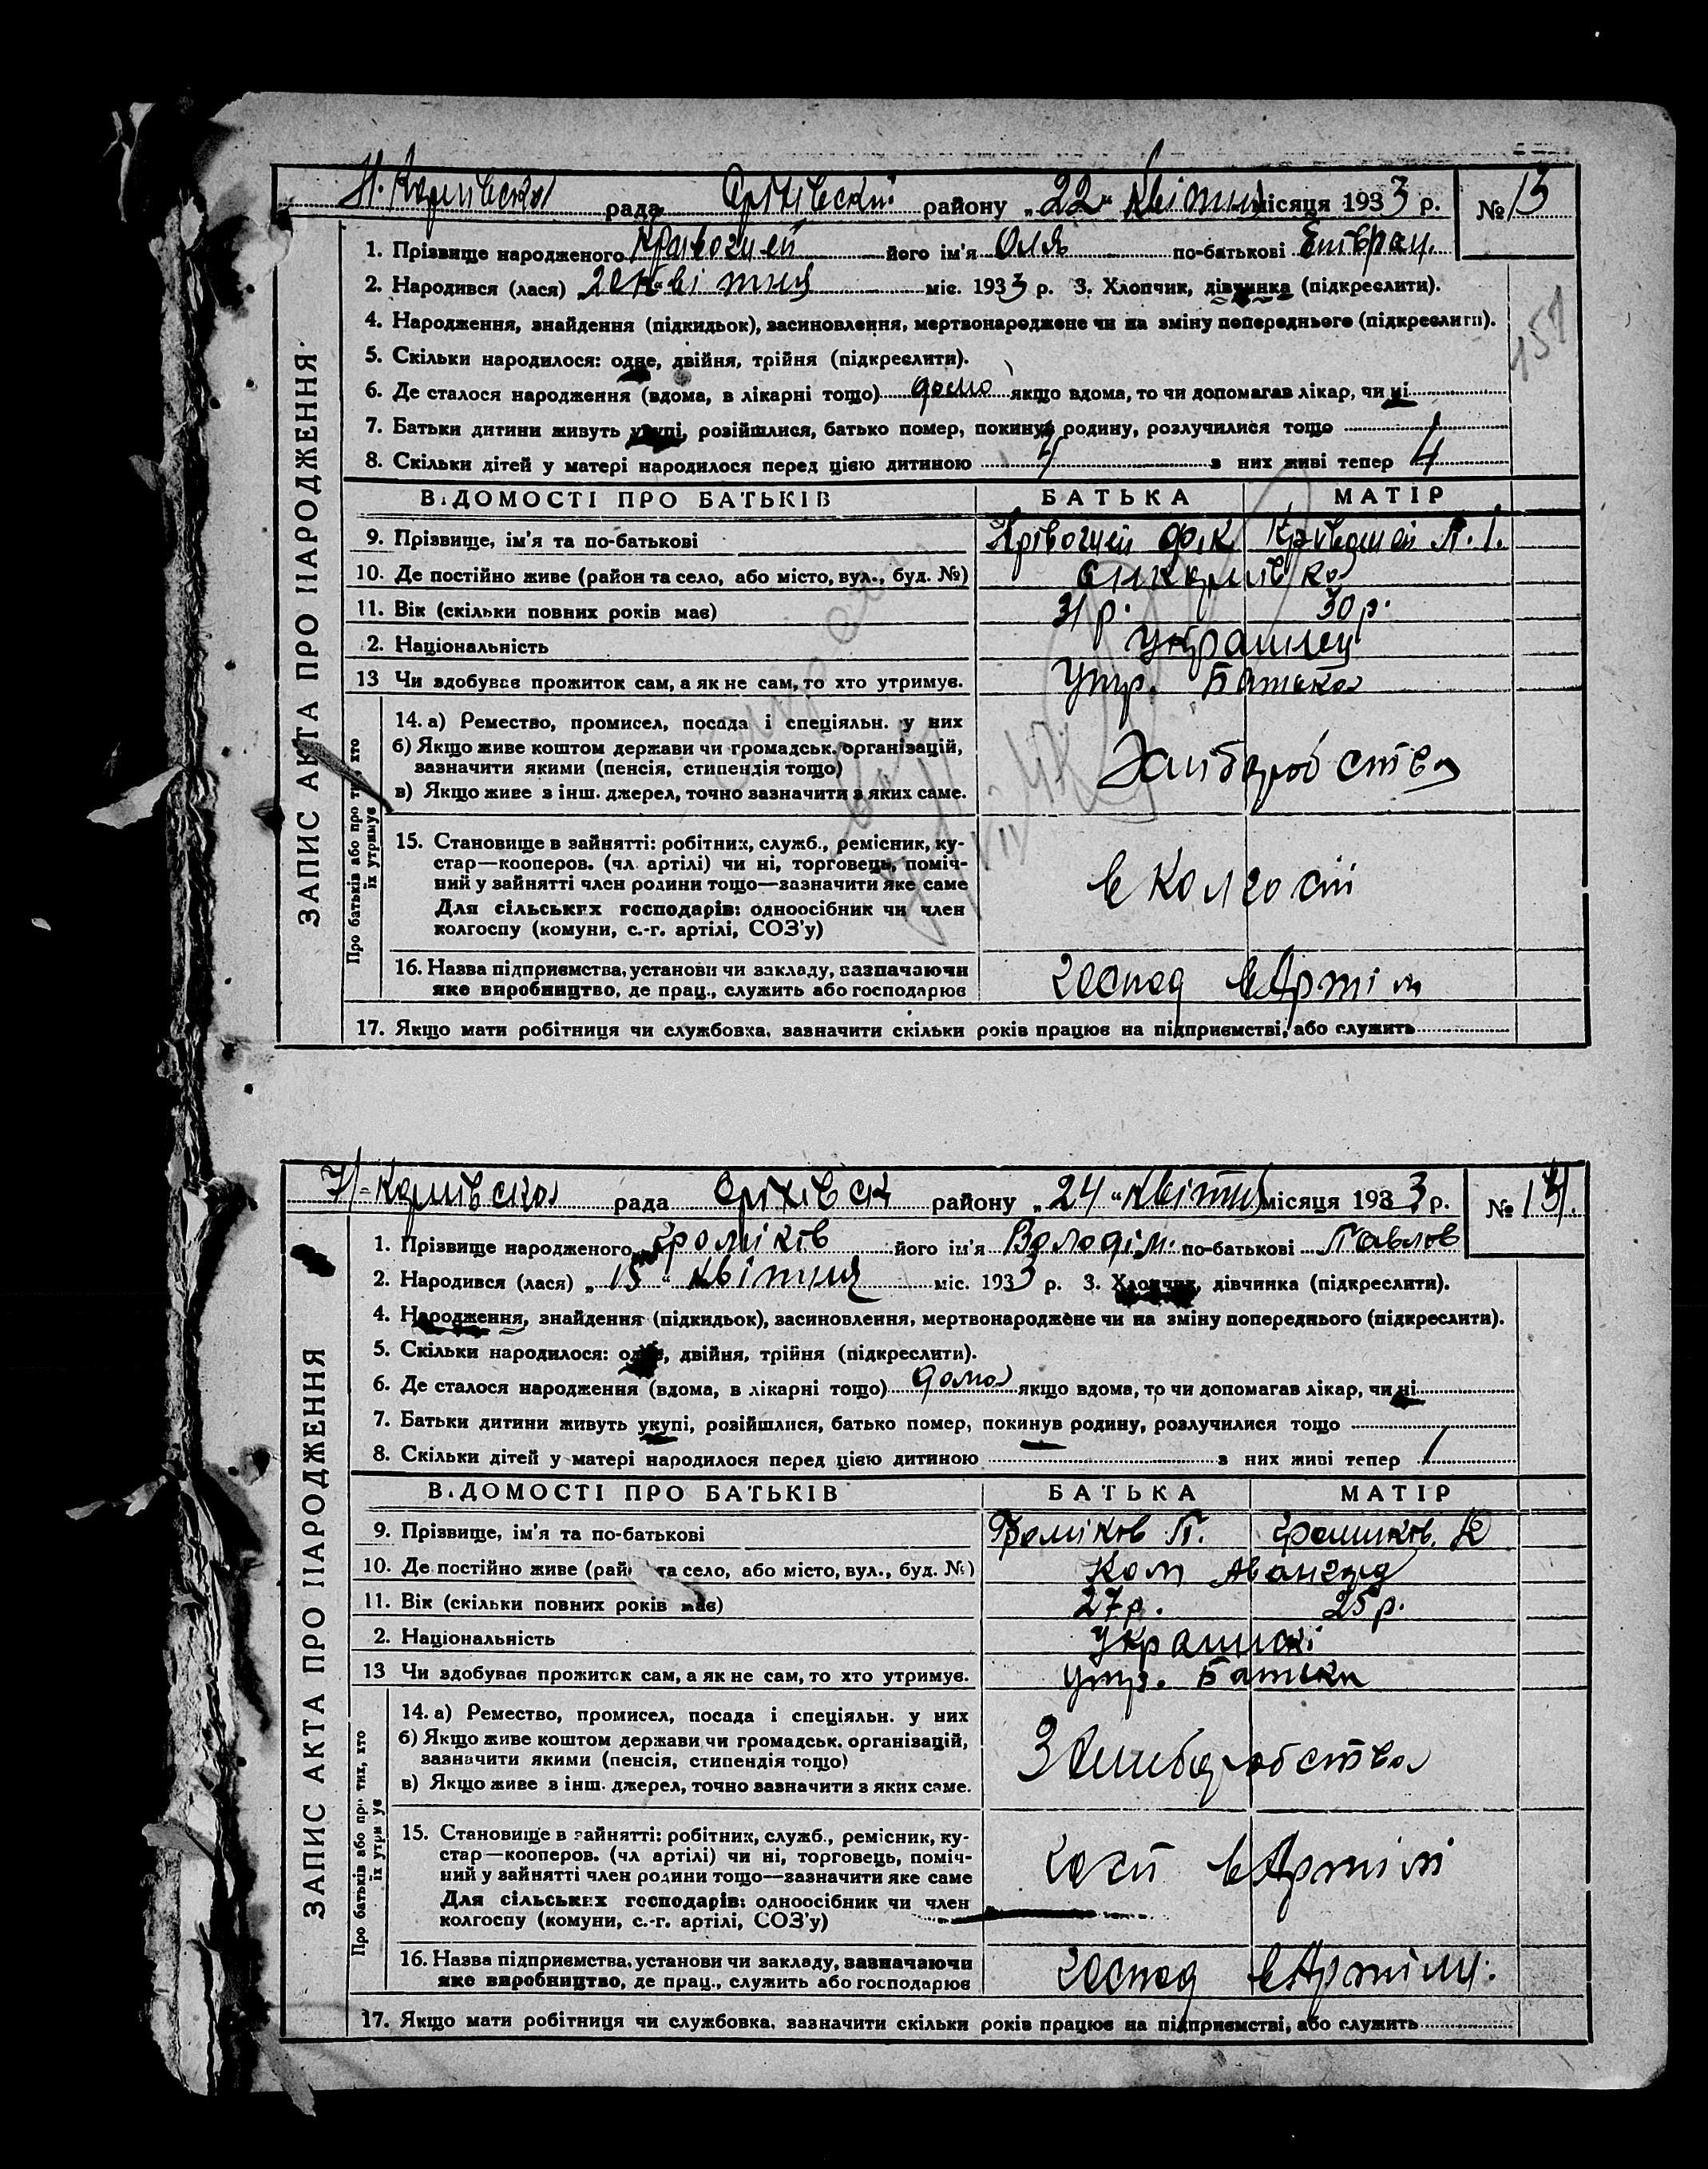 Н. Карлівська рада Оріхівский району „22" квітня місяця 1933 р. № 13
ЗАПИС АКТА ПРО НАРОДЖЕННЯ
1. Прізвище народженого його ім'я Оля по-батькові
2. Народився (лася) 20 квітня міс. 1933 р. 3. Хлопчик, дівчинка (підкреслити).
4. Народження, знайдення (підкидьок), засиновлення, мертвонароджене чи на зміну попереднього (підкреслити).
5. Скільки народилося: одне, двійня, трійня (підкреслити).
6. Де сталося народження (вдома, в лікарні тощо) дома якщо вдома, то чи допомагав лікар, чи ні
7. Батьки дитини живуть укупі, розійшлися, батько помер, покинув родину, розлучилися тощо
8. Скільки дітей у матері народилося перед цією дитиною 4 з них живі тепер 4
ВІДОМОСТІ ПРО БАТЬКІВ БАТЬКА МАТІР
9. Прізвище, ім'я та по-батькові Крівошей Крівошей П. І.
10. Де постійно живе (район та село, або місто, вул., буд. №)
11. Вік (скільки повних років має) 31 р. 30 р.
2. Національність
13 Чи здобуває прожиток сам, а як не сам, то хто утримує. Утр. Батька
Про батьків або про тих, хто їх утримує
14. а) Ремество, промисел, посада і спеціяльн. у них
б) Якщо живе коштом держави чи громадськ. організацій,
зазначити якими (пенсія, стипендія тощо)
в) Якщо живе з інш. джерел, точно зазначити з яких саме.
15. Становище в зайнятті: робітник, служб., ремісник, ку-
стар—кооперов. (чл. артілі) чи ні, торговець, поміч-
ний у зайнятті член родини тощо—зазначити яке саме
в колгоспі
Для сільських господарів: одноосібник чи член
колгоспу (комуни, с.-г. артілі, СОЗ'у)
16. Назва підприємства, установи чи закладу, зазначаючи
яке виробництво, де прац., служить або господарює
господ в Артіли
17. Якщо мати робітниця чи службовка, зазначити скільки років працює на підприємстві, або служить
Н-Карлівська рада Оріхівск району „24" квітня місяця 1933 р. № 14.
ЗАПИС АКТА ПРО НАРОДЖЕННЯ
1. Прізвище народженого Громіков його ім'я Володім. по-батькові Павлов
2. Народився (лася) „15" квітня міс. 1933 р. 3. Хлопчик, дівчинка (підкреслити).
4. Народження, знайдення (підкидьок), засиновлення, мертвонароджене чи на зміну попереднього (підкреслити).
5. Скільки народилося: одне, двійня, трійня (підкреслити).
6. Де сталося народження (вдома, в лікарні тощо) дома якщо вдома, то чи допомагав лікар, чи ні
7. Батьки дитини живуть укупі, розійшлися, батько помер, покинув родину, розлучилися тощо
8. Скільки дітей у матері народилося перед цією дитиною з них живі тепер 1
ВІДОМОСТІ ПРО БАТЬКІВ БАТЬКА МАТІР
9. Прізвище, ім'я та по-батькові Громіков П.
10. Де постійно живе (район та село, або місто, вул., буд. №) Ком Авангард
11. Вік (скільки повних років має) 27 р. 25 р.
2. Національність
13 Чи здобуває прожиток сам, а як не сам, то хто утримує. утр. Батьки
Про батьків або про тих, хто їх утримує
14. а) Ремество, промисел, посада і спеціяльн. у них
б) Якщо живе коштом держави чи громадськ. організацій,
зазначити якими (пенсія, стипендія тощо)
в) Якщо живе з інш. джерел, точно зазначити з яких саме.
15. Становище в зайнятті: робітник, служб., ремісник, ку-
стар—кооперов. (чл артілі) чи ні, торговець, поміч-
ний у зайнятті член родини тощо—зазначити яке саме
госп в Артілі
Для сільських господарів: одноосібник чи член
колгоспу (комуни, с.-г. артілі, СОЗ'у)
16. Назва підприємства, установи чи закладу, зазначаючи
яке виробництво, де прац., служить або господарює
господ в Артілі.
17. Якщо мати робітниця чи службовка, зазначити скільки років працює на підприємстві, або служить